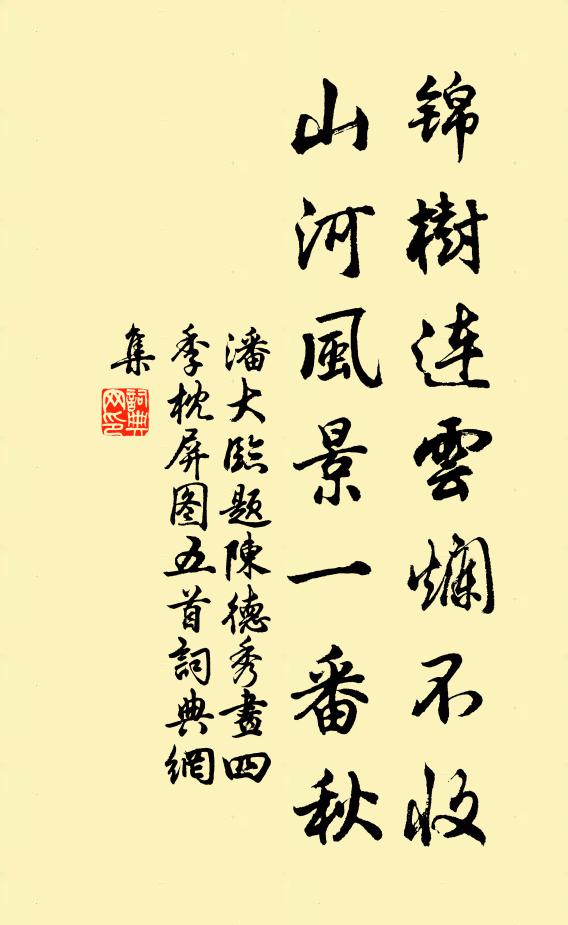 锦樹連雲爛不收
山河風景一番秋
潘大臨题陳德秀畫四
季枕屏图五首詞典網
集
詞典
网印